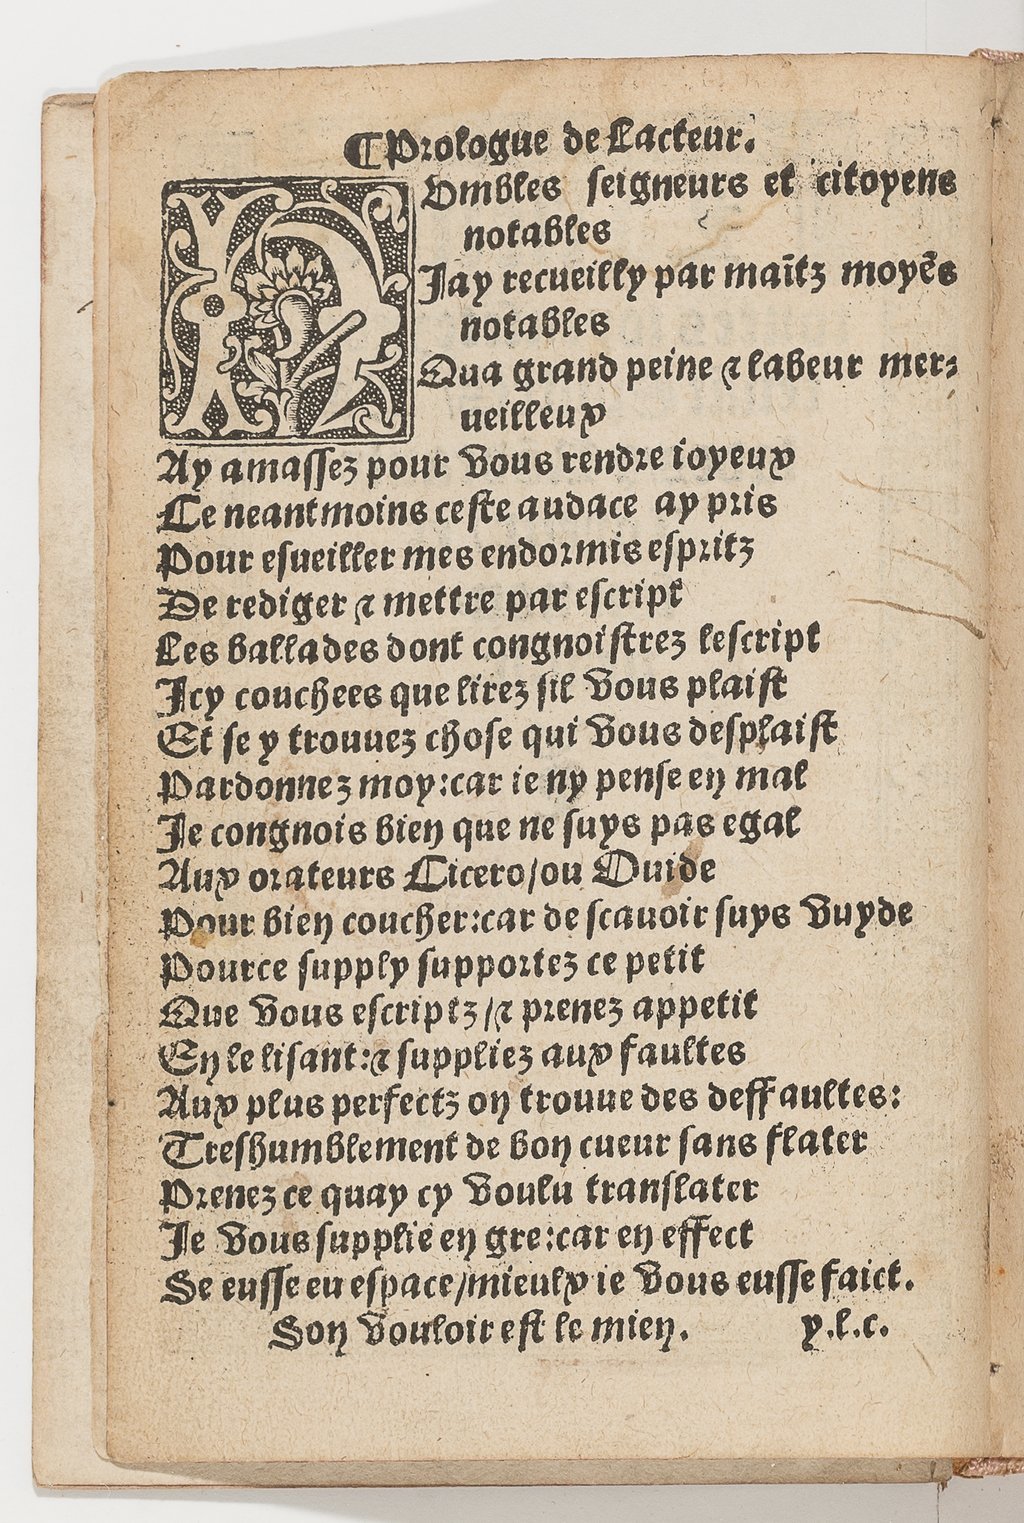 ¶Prologue de Lacteur.
NOmbles seigneurs et citoyens
notables
Jay recueilly par maītz moyēs
notables
Qua grand peine ⁊ labeur mer⸗
ueilleux
Ay amassez pour vous rendre ioyeux
Ce neantmoins ceste audace ay pris
Pour esueiller mes endormis espritz
De rediger ⁊ mettre par escript
Les ballades dont congnoistrez lescript
Icy couchees que lirez sil vous plaist
Et se y trouuez chose qui vous desplaist
Pardonnez moy:car ie ny pense en mal
Je congnois bien que ne suys pas egal
Aux orateurs Cicero/ou Ouide
Pour bien coucher:car de scauoir suys vuyde
Pource supply supportez ce petit
Que vous escriptz/⁊ prenez appetit
En le lisant:⁊ suppliez aux faultes
Aux plus perfectz on trouue des deffaultes:
Treshumblement de bon cueur sans flater
Prenez ce quay cy voulu translater
Je vous supplie en gre:car en effect
Se eusse eu espace/mieulx ie vous eusse faict.
Son vouloir est le mien. y.l.c.